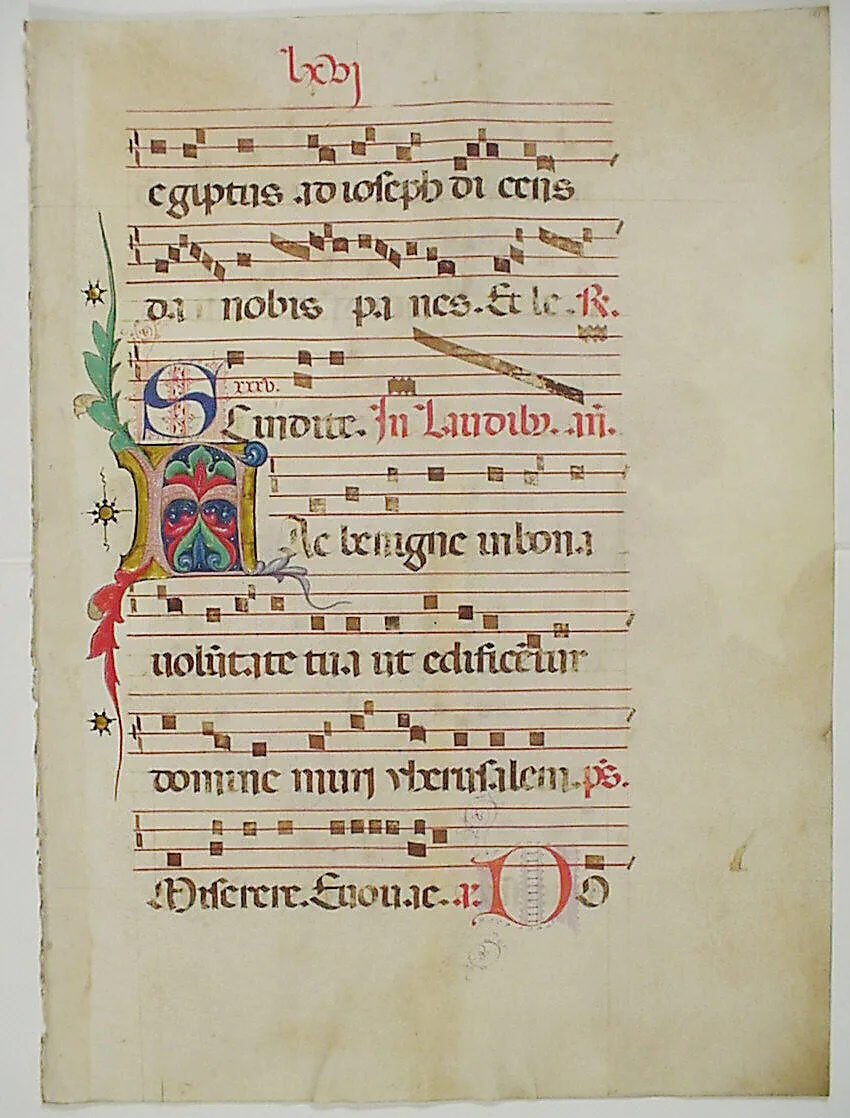 lxvj
egiptus ad ioseph di cens
da nobis pa nes. Et le. R.
S xxxv.
cindite. In Laudib⁹. añ.
Ac benigne in bona
uolūtate tua ut edificētur
domine muri yherusalem. ps.
Miserere. Euouae. a. D O